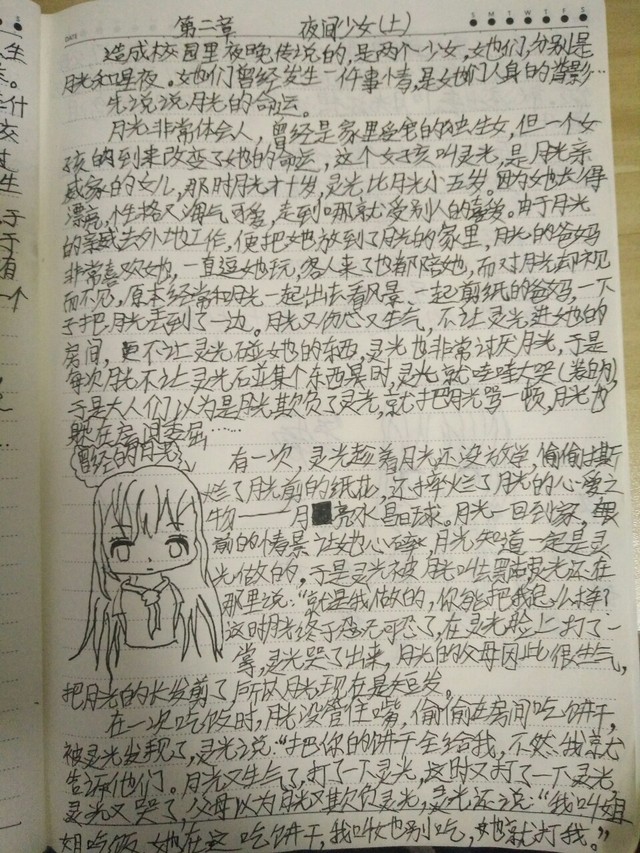 DATE
S M T W T F S
第二章 夜间少女(上)
造成校园里夜晚传说的,是两个少女,她们,分别是
月光和星夜。她们曾经发生一件事情,是她们人身的背影…
先说说月光的命运。
月光非常体会人,曾经是家里受宠的独生女,但一个女
孩的到来改变了她的命运,这个女孩叫灵光,是月光亲
戚家的女儿,那时月光才十岁,灵光比月光小五岁。因为她长得
漂亮,性格又淘气可爱,走到哪就受别人的喜爱。由于月光
的亲戚去外地工作,便把她放到了月光的家里,月光的爸妈
非常喜欢她,一直逗她玩,客人来了也都陪她,而对月光却视
而不见,原本经常和月光一起出去看风景、一起剪纸的爸妈,一下
子把月光丢到了一边。月光又伤心又生气,不让灵光进她的
房间,更不让灵光碰她的东西,灵光也非常讨厌月光,于是
每次月光不让灵光碰某个东西某时,灵光就哇哇大哭(装的)
于是大人们以为是月光欺负了灵光,就把月光骂一顿,月光也
躲在房间委屈……
曾经的月光
有一次,灵光趁着月光还没放学,偷偷撕
烂了月光前的纸花,还摔烂了月光的心爱之
物——月亮水晶球。月光一回到家,眼
前的情景让她心碎,月光知道一定是灵
光做的,于是灵光被月光叫去,灵光还在
那里说:“就是我做的,你能把我怎么样?
这时月光终于忍无可忍了,在灵光脸上打了一
掌,灵光哭了出来,月光的父母因此很生气,
把月光的长发剪了,所以月光现在是短发。
在一次吃饭时,月光没管住嘴,偷偷在房间吃饼干,
被灵光发现了,灵光说:“把你的饼干全给我,不然我就
告诉他们。月光又生气了,打了一下灵光,这时又打了一下灵光
灵光又哭了,父母以为月光又欺负灵光,灵光还说:“我叫姐
姐吃饭,她在这吃饼干,我叫她别吃,她就打我。”